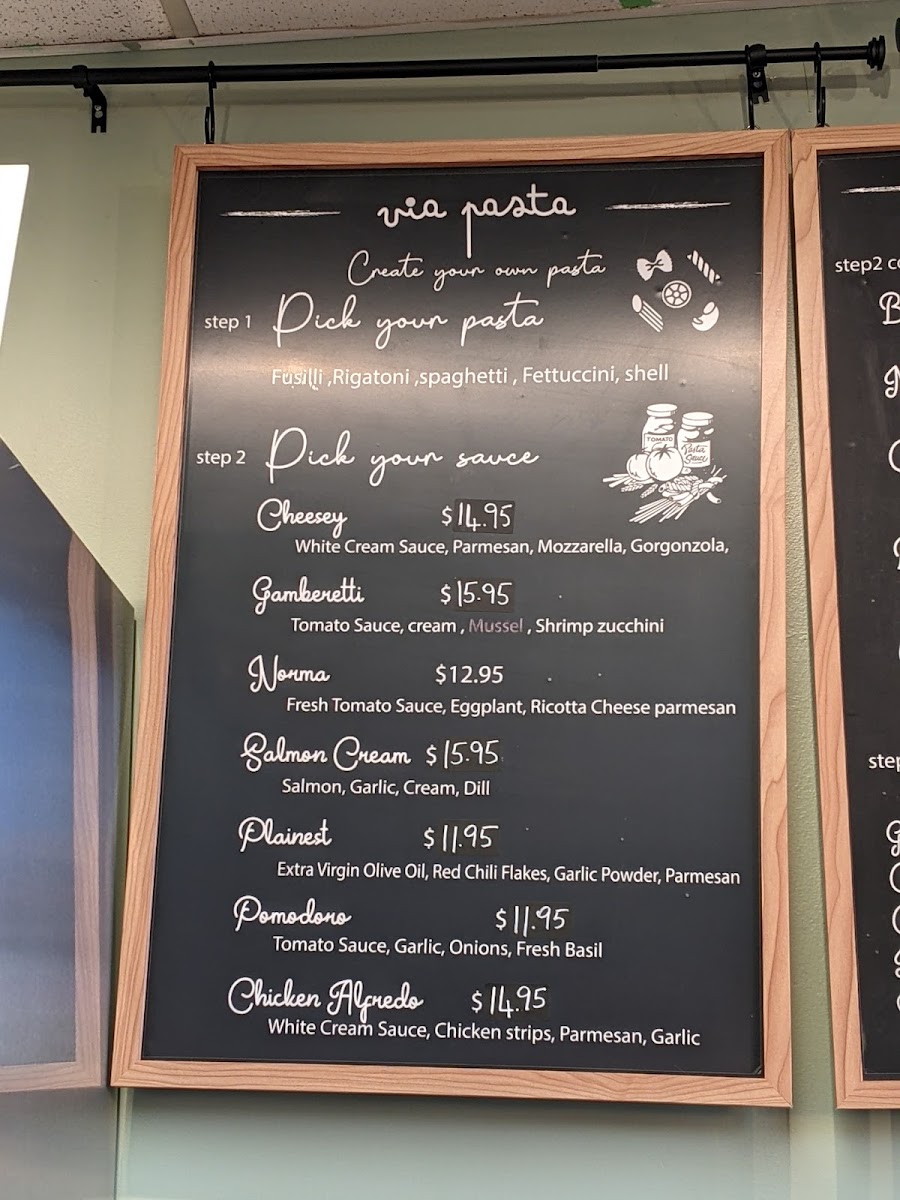 via pasta
Create your own pasta
step 1 Pick your pasta
Fusilli ,Rigatoni ,spaghetti , Fettuccini, shell
TOMATO
Pasta Sauce
step 2 Pick your sauce
Cheesey $14.95
White Cream Sauce, Parmesan, Mozzarella, Gorgonzola,
Gamberetti $15.95
Tomato Sauce, cream , Mussel , Shrimp zucchini
Norma $12.95
Fresh Tomato Sauce, Eggplant, Ricotta Cheese parmesan
Salmon Cream $15.95
Salmon, Garlic, Cream, Dill
Plainest $11.95
Extra Virgin Olive Oil, Red Chili Flakes, Garlic Powder, Parmesan
Pomodoro $11.95
Tomato Sauce, Garlic, Onions, Fresh Basil
Chicken Alfredo $14.95
White Cream Sauce, Chicken strips, Parmesan, Garlic
step2